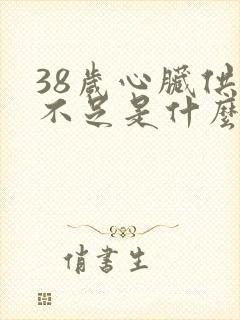 38歲心臟供
不足是什麼
俏書生